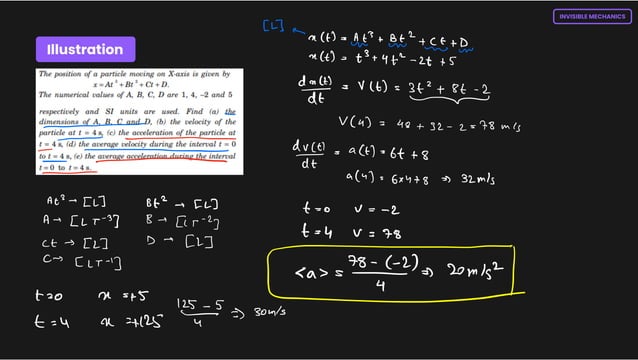 INVISIBLE MECHANICS
Illustration
The position of a particle moving on X-axis is given by
x = At³ + Bt² + Ct + D.
The numerical values of A, B, C, D are 1, 4, –2 and 5
respectively and SI units are used. Find (a) the
dimensions of A, B, C and D, (b) the velocity of the
particle at t = 4 s, (c) the acceleration of the particle at
t = 4 s, (d) the average velocity during the interval t = 0
to t = 4 s, (e) the average acceleration during the interval
t = 0 to t = 4 s.
At³ → [L]
A → [L T⁻³]
Ct → [L]
C → [L T⁻¹]
Bt² → [L]
B → [L T⁻²]
D → [L]
t=0 x = +5
t = 4 x = +125
125 - 5 / 4 ⇒ 30 m/s
[L]
x(t) = At³ + Bt² + Ct + D
x(t) = t³ + 4t² - 2t + 5
dx(t)/dt = v(t) = 3t² + 8t - 2
v(4) = 48 + 32 - 2 = 78 m/s
dv(t)/dt = a(t) = 6t + 8
a(4) = 6×4+8 ⇒ 32 m/s
t=0 v = -2
t = 4 v = 78
<a> = 78 - (-2) / 4 ⇒ 20 m/s²